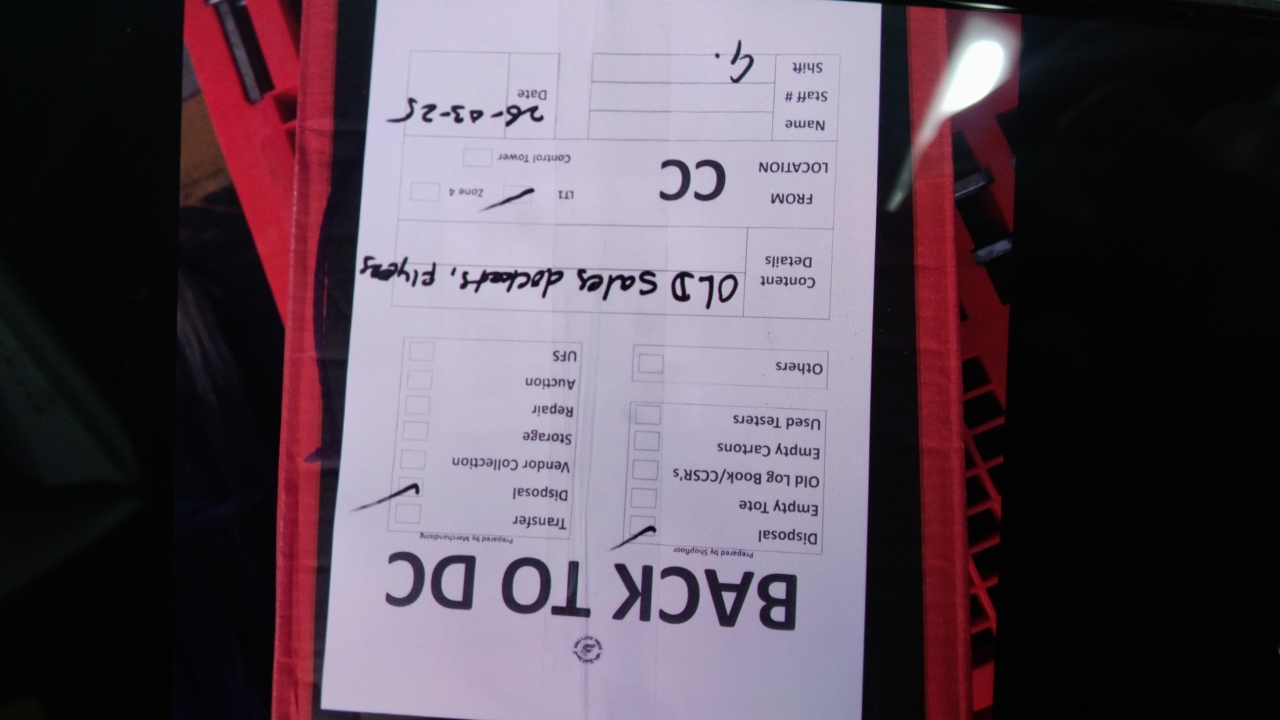 BACK TO DC
Prepared by Shopfloor
Disposal
Empty Tote
Old Log Book/CCSR's
Empty Cartons
Used Testers
Others
Prepared by Merchandising
Transfer
Disposal
Vendor Collection
Storage
Repair
Auction
UFS
Content Details
OLD Sales dockets, Flyers
FROM LOCATION
CC
LT1
Zone 4
Control Tower
Name
Staff #
Shift
Date
26-03-25